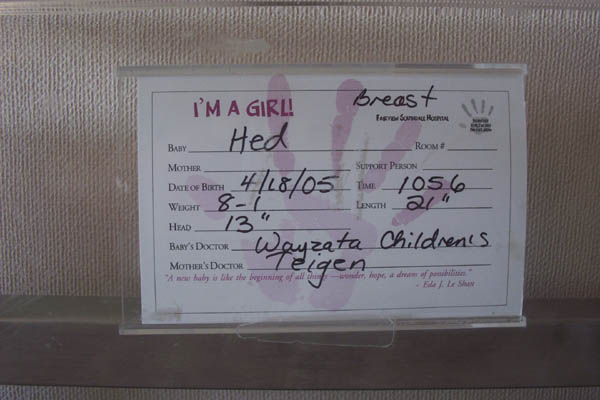 I'M A GIRL! Breast
FAIRVIEW SOUTHDALE HOSPITAL
BABY Hed ROOM #
MOTHER SUPPORT PERSON
DATE OF BIRTH 4/18/05 TIME 1056
WEIGHT 8-1 LENGTH 21"
HEAD 13"
BABY'S DOCTOR Wayzata Children's
MOTHER'S DOCTOR Teigen
"A new baby is like the beginning of all things—wonder, hope, a dream of possibilities."
- Eda J. Le Shan